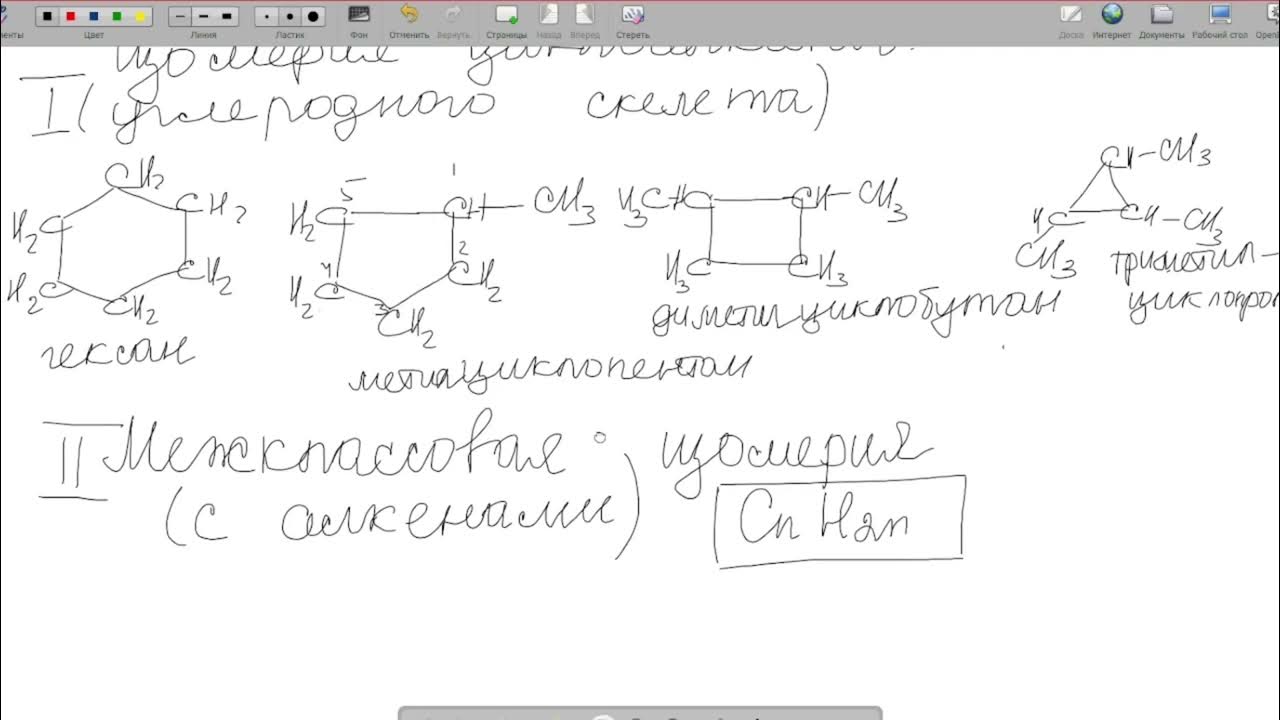 Цвет Линия Ластик Фон Отменить Вернуть Страницы Назад Вперед Стереть Доска Интернет Документы Рабочий стол
изомерия
I (углеродного скелета)
CH2
H2C CH2
H2C CH2
CH2
гексан
5 1
H2C CH - CH3
4 2
H2C CH2
3
CH2
метилциклопентан
H3CHC CH - CH3
H3C CH3
диметилциклобутан
CH - CH3
HC CH - CH3
CH3
триметил-
циклопроп
II Межклассовая изомерия
(с алкенами) CnH2n